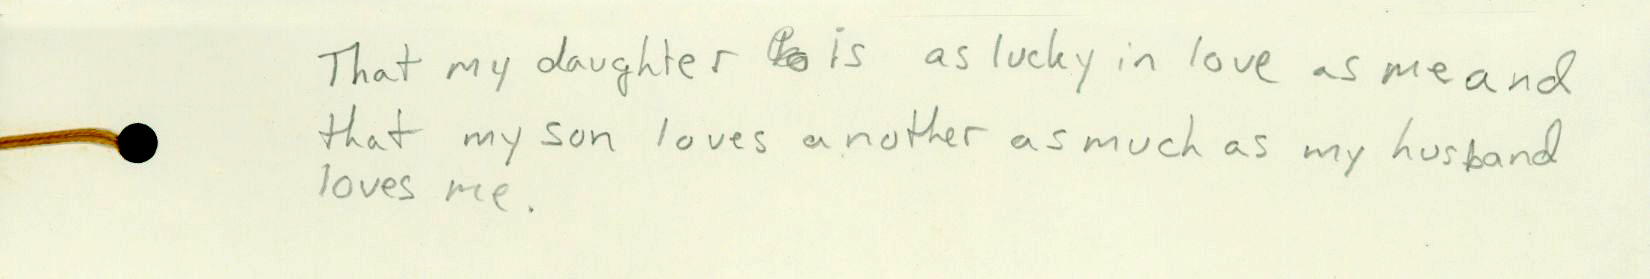 That my daughter is as lucky in love as me and
that my son loves another as much as my husband
loves me.